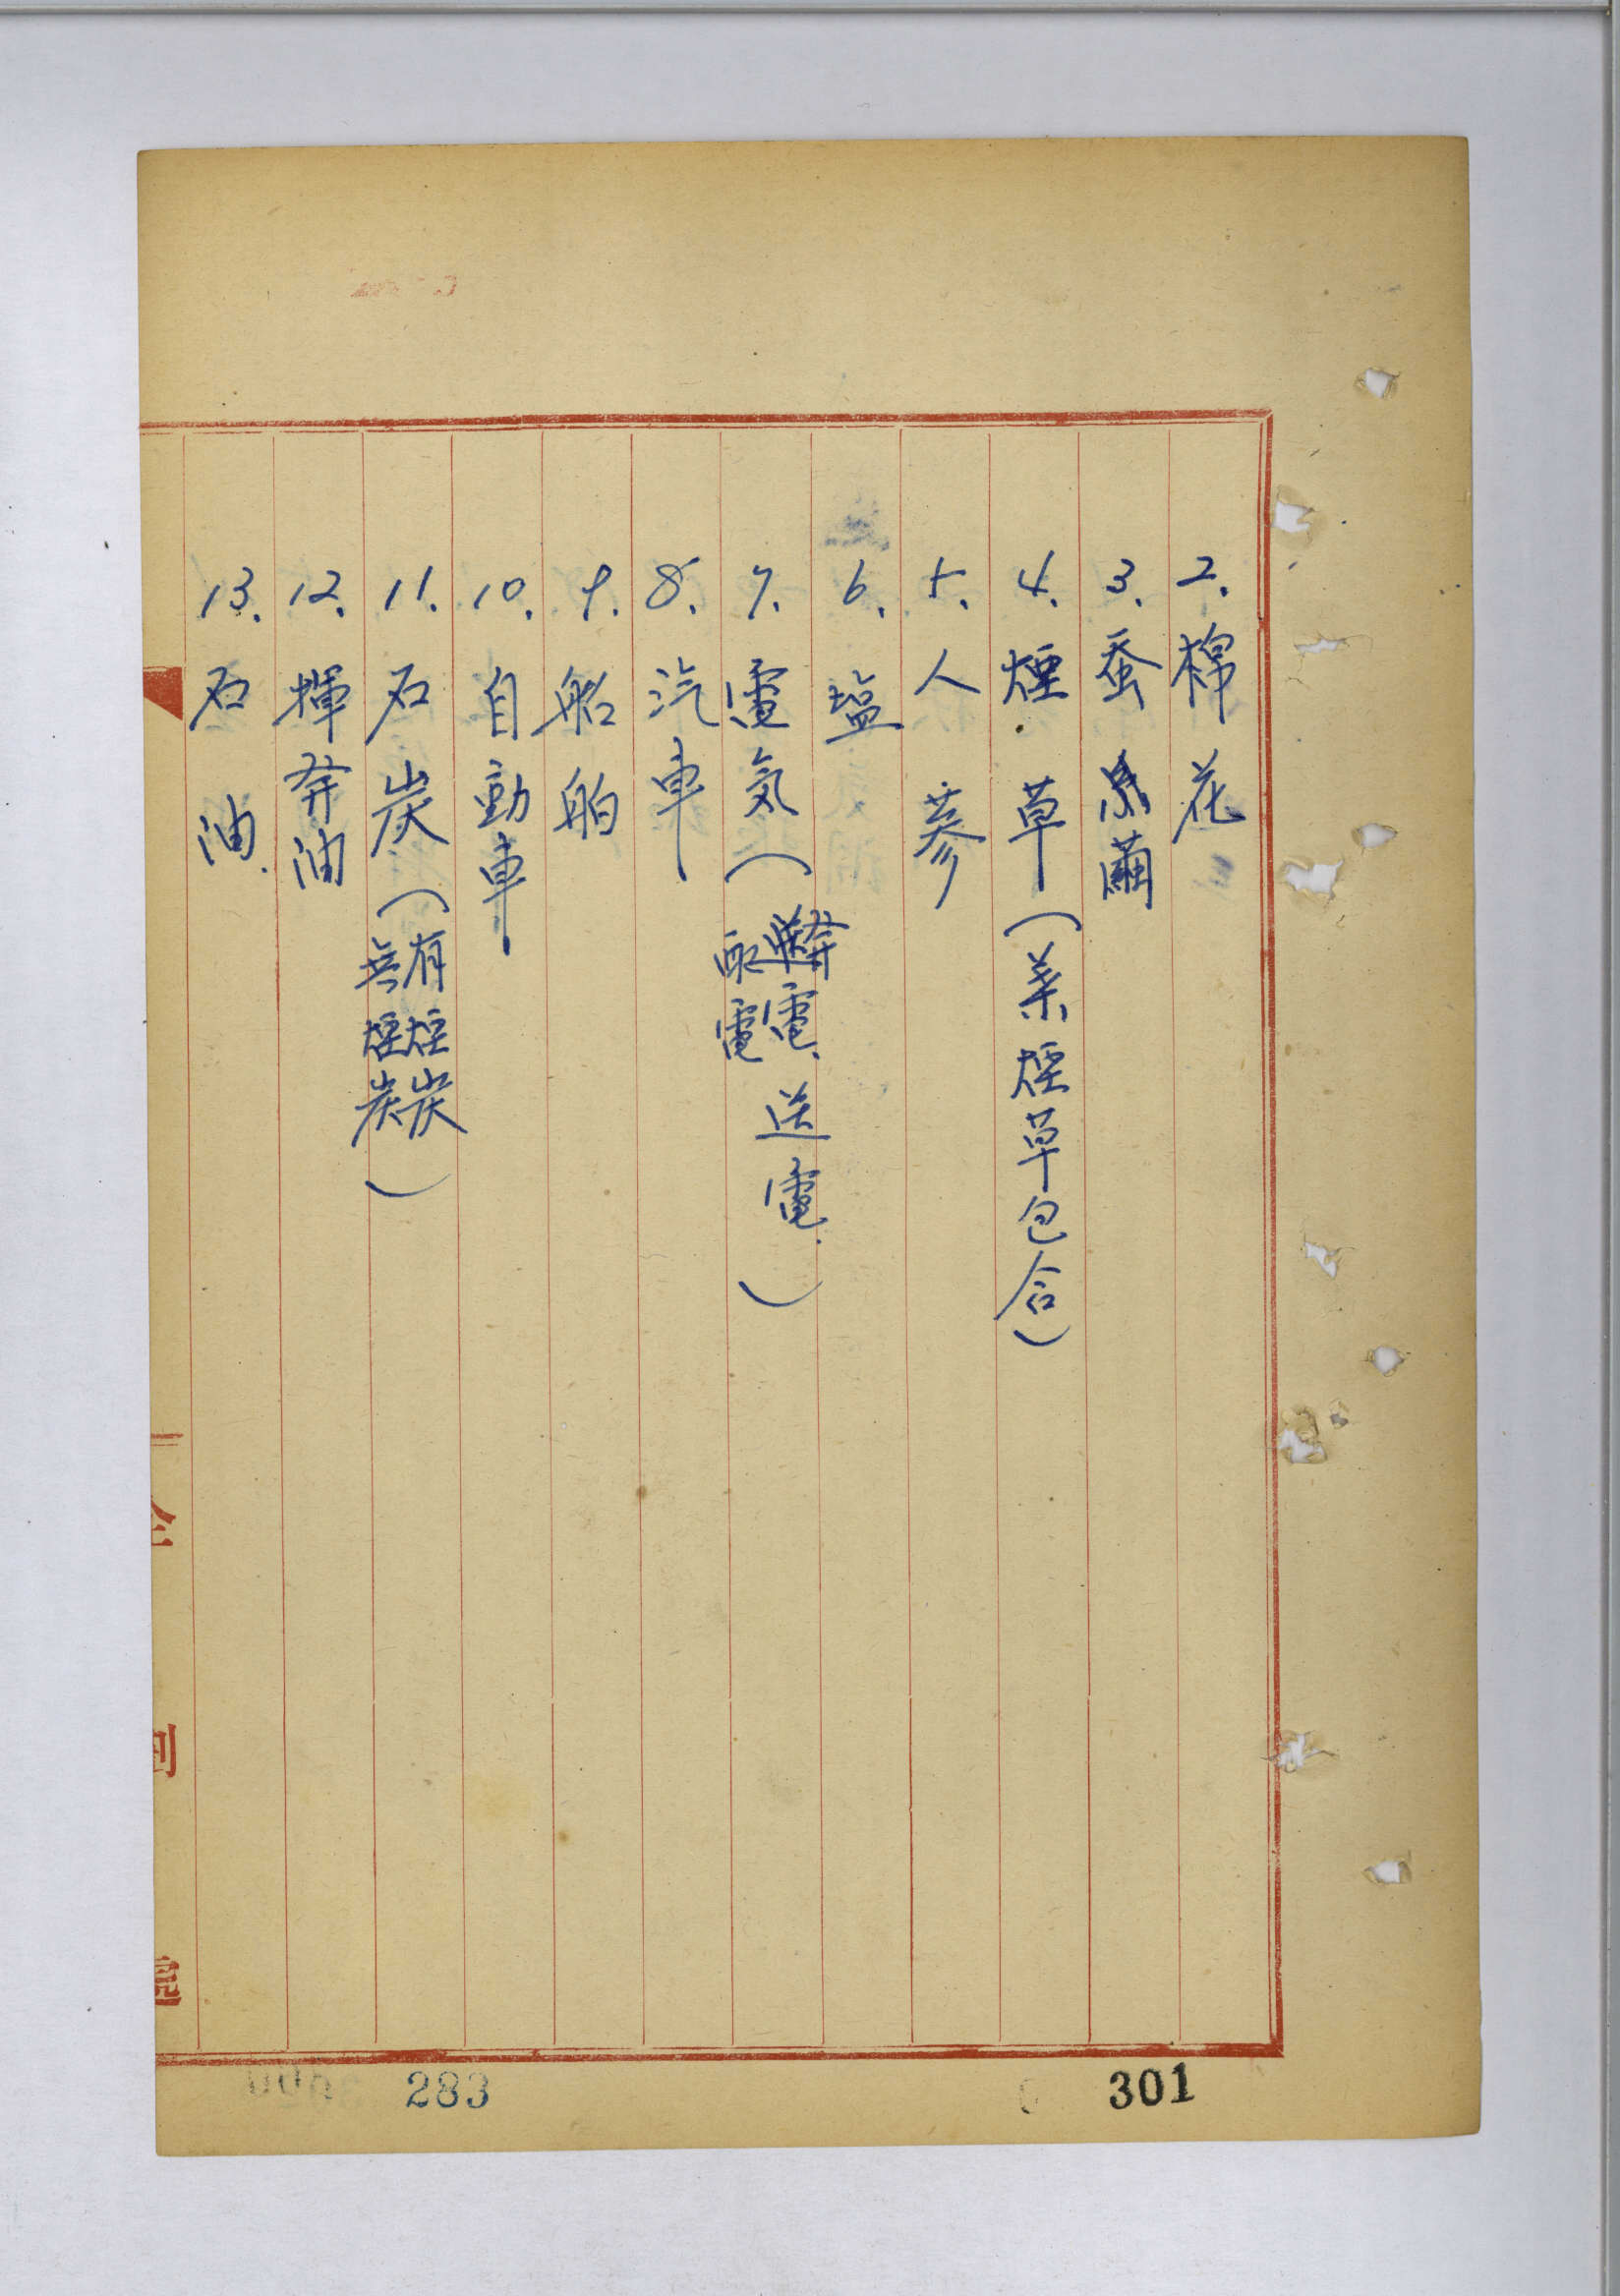 2. 棉花
3. 蚕繭
4. 煙草(葉煙草包含)
5. 人蔘
6. 塩
7. 電気(発電、送電、配電)
8. 汽車
9. 船舶
10. 自動車
11. 石炭(有煙炭 無煙炭)
12. 揮発油
13. 石油
283
301